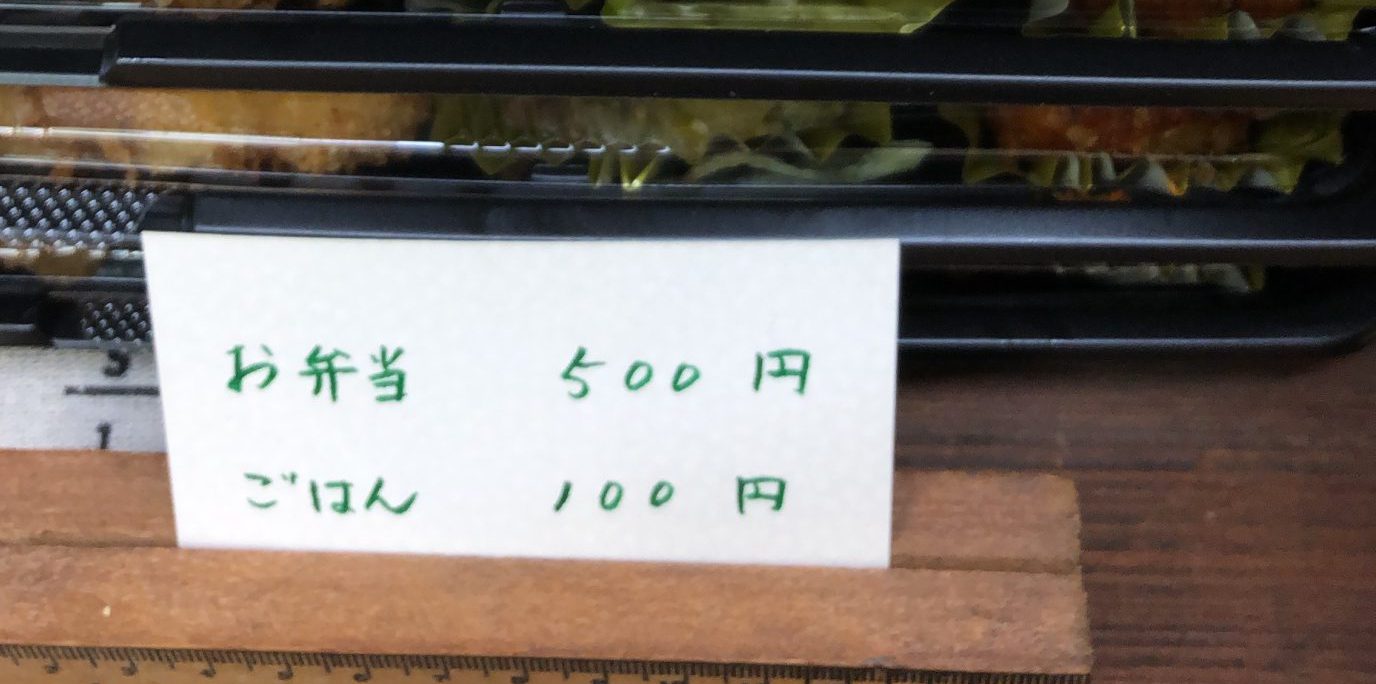 お弁当 500 円
ごはん 100 円